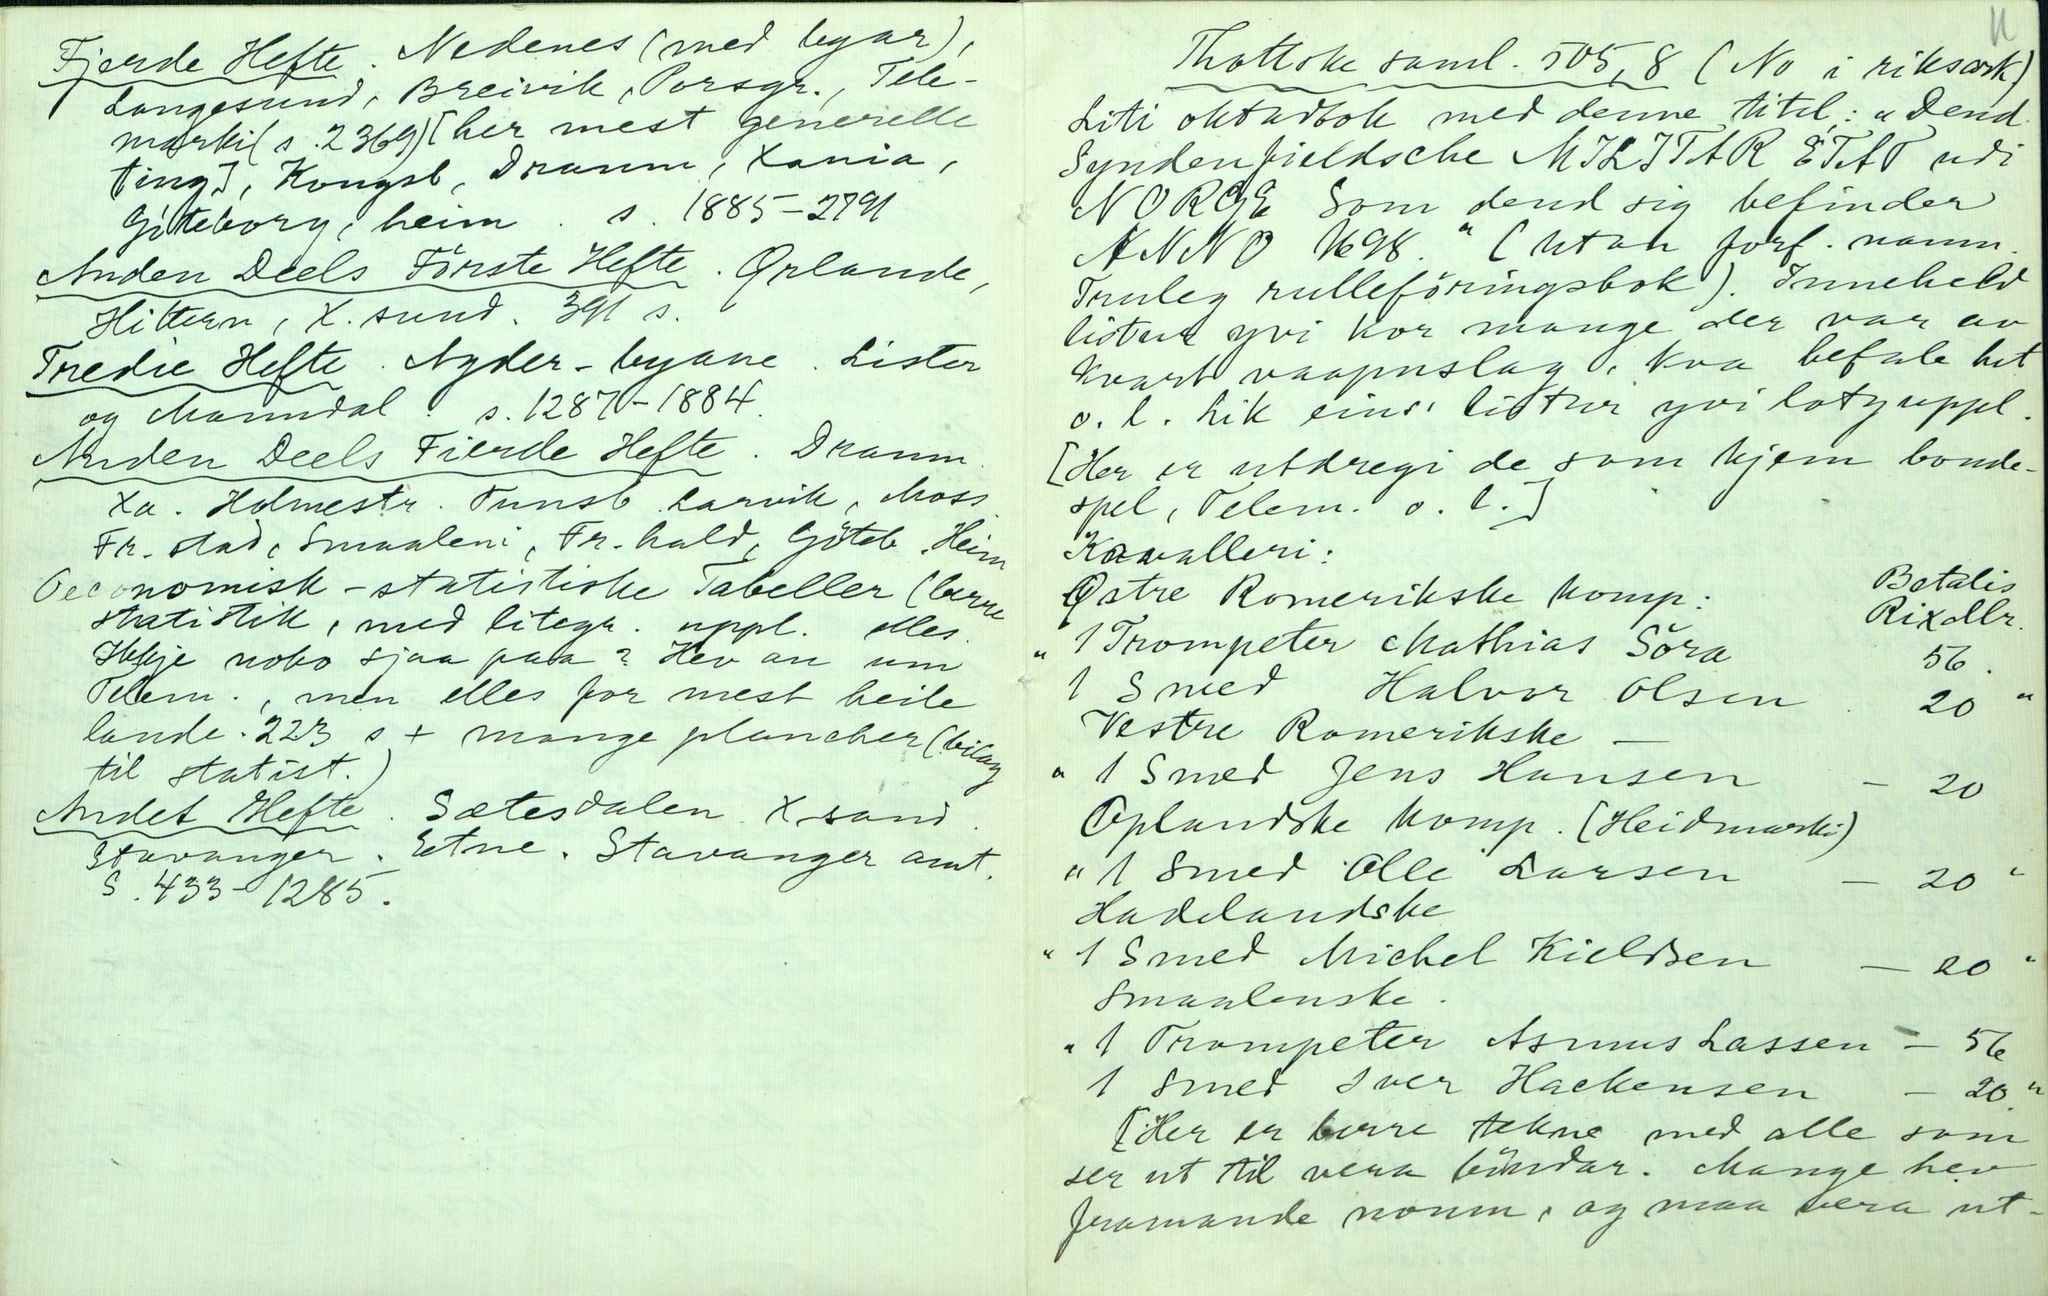 Fjerde Hefte. Nedenes (med byar),
Langesund, Breivik, Porsgr., Tele-
marki (s. 2369) [her mest generelle
ting], Kongsb, Dramm, Xania,
Göteborg, heim. s. 1885-2791
Anden Deels Förste Hefte. Ørlande,
Hittern, X.sund. 391 s.
Tredie Hefte. Agder-byane. Lister
og Manndal. s. 1287-1884.
Anden Deels Fierde Hefte. Dramm.
Xa. Holmestr. Tunsb. Larvik, Moss
Fr.stad, Smaaleni, Fr.hald, Göteb. Heim
Oeconomisk-statistiske Tabeller (berre
statistik, med litegr. uppl. elles.
Ikkje noko sjaa paa? Hev an um
Telem., men elles for mest heile
lande. 223 s + mange plancher (bilag
til statist.)
Andet Hefte. Sætesdalen X.sand.
Stavanger. Etne. Stavanger amt.
S. 433-1285.
11
Thottske saml. 505, 8 (No i riksark)
Liti oktavbok med denne titel: "Dend
Syndenfieldsche MILITAR ETAT udi
NORGE Som dend sig befinder
ANNO 1698." (Utan forf. namn.
Truleg rulleföringsbok). Inneheld
listur yvi kor mange der var av
kvart vaapnslag, kva befale het
o. l. Lik eins listur yvi lotgruppl.
[Her er utdregi de som kjem bonde-
spel, Telem. o. l.]
Kavalleri:
Østre Romerikske komp: Betalis
Rixdlr.
" 1 Trompeter Mathias Söra 56.
1 Smed Halvor Olsen 20 "
Vestre Romerikske —
" 1 Smed Jens Hansen — 20
Oplandske komp. (Heidmarki)
" 1 Smed Olle Larsen — 20 "
Hadelandske
" 1 Smed Michel Kieldsen — 20 "
Smaalenske.
" 1 Trompeter Asmus Lassen — 56
1 Smed Iver Hackensen — 20 "
[Her er berre tekne med alle som
ser ut til vera böndar. Mange hev
framande namn, og maa vera ut-